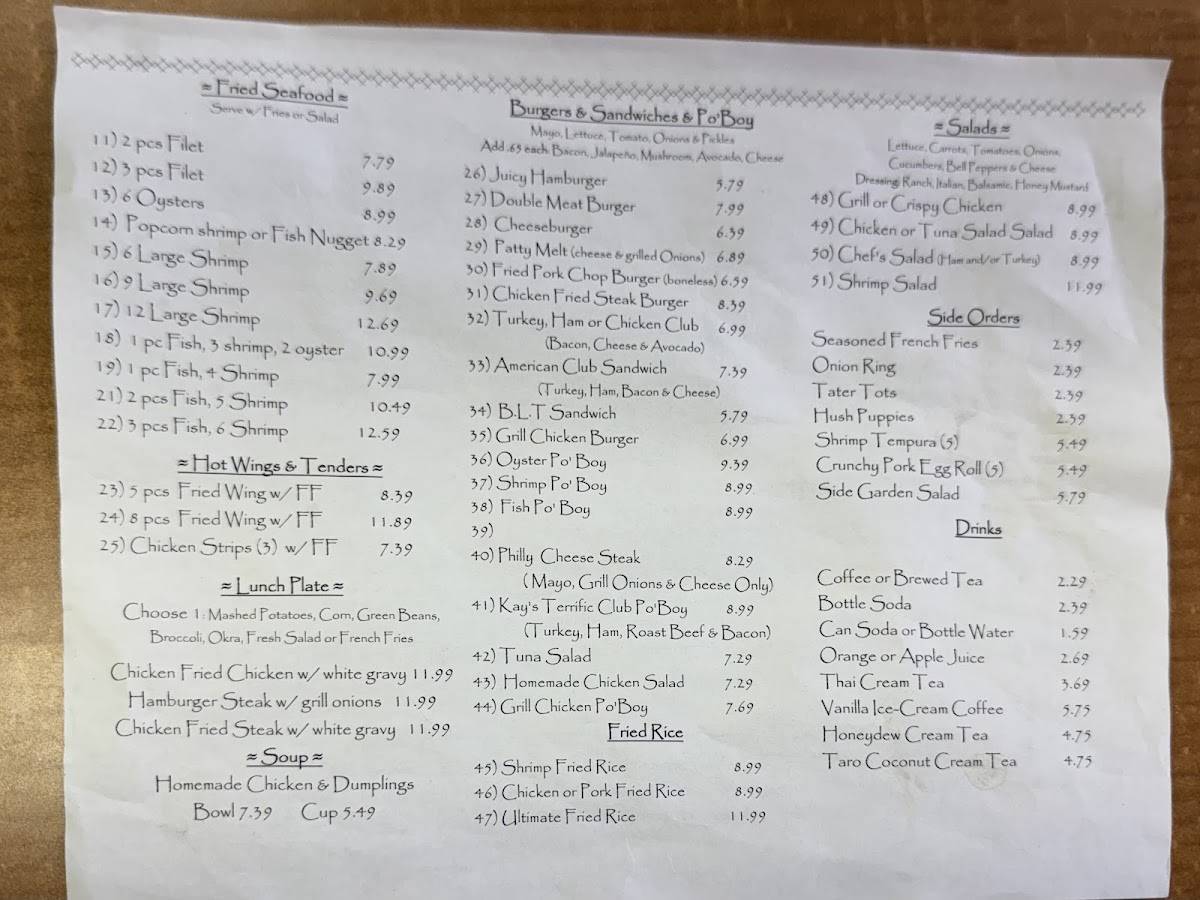 ≈ Fried Seafood ≈
Serve w/ Fries or Salad
11) 2 pcs Filet 7.79
12) 3 pcs Filet 9.89
13) 6 Oysters 8.99
14) Popcorn shrimp or Fish Nugget 8.29
15) 6 Large Shrimp 7.89
16) 9 Large Shrimp 9.69
17) 12 Large Shrimp 12.69
18) 1 pc Fish, 3 shrimp, 2 oyster 10.99
19) 1 pc Fish, 4 Shrimp 7.99
21) 2 pcs Fish, 5 Shrimp 10.49
22) 3 pcs Fish, 6 Shrimp 12.59
≈ Hot Wings & Tenders ≈
23) 5 pcs Fried Wing w/ FF 8.39
24) 8 pcs Fried Wing w/ FF 11.89
25) Chicken Strips (3) w/ FF 7.39
≈ Lunch Plate ≈
Choose 1: Mashed Potatoes, Corn, Green Beans,
Broccoli, Okra, Fresh Salad or French Fries
Chicken Fried Chicken w/ white gravy 11.99
Hamburger Steak w/ grill onions 11.99
Chicken Fried Steak w/ white gravy 11.99
≈ Soup ≈
Homemade Chicken & Dumplings
Bowl 7.39 Cup 5.49
Burgers & Sandwiches & Po'Boy
Mayo, Lettuce, Tomato, Onions & Pickles
Add .65 each: Bacon, Jalapeño, Mushroom, Avocado, Cheese
26) Juicy Hamburger 5.79
27) Double Meat Burger 7.99
28) Cheeseburger 6.39
29) Patty Melt (cheese & grilled Onions) 6.89
30) Fried Pork Chop Burger (boneless) 6.59
31) Chicken Fried Steak Burger 8.39
32) Turkey, Ham or Chicken Club 6.99
(Bacon, Cheese & Avocado)
33) American Club Sandwich 7.39
(Turkey, Ham, Bacon & Cheese)
34) B.L.T Sandwich 5.79
35) Grill Chicken Burger 6.99
36) Oyster Po' Boy 9.39
37) Shrimp Po' Boy 8.99
38) Fish Po' Boy 8.99
39)
40) Philly Cheese Steak 8.29
( Mayo, Grill Onions & Cheese Only)
41) Kay's Terrific Club Po'Boy 8.99
(Turkey, Ham, Roast Beef & Bacon)
42) Tuna Salad 7.29
43) Homemade Chicken Salad 7.29
44) Grill Chicken Po'Boy 7.69
Fried Rice
45) Shrimp Fried Rice 8.99
46) Chicken or Pork Fried Rice 8.99
47) Ultimate Fried Rice 11.99
≈ Salads ≈
Lettuce, Carrots, Tomatoes, Onions,
Cucumbers, Bell Peppers & Cheese
Dressing: Ranch, Italian, Balsamic, Honey Mustard
48) Grill or Crispy Chicken 8.99
49) Chicken or Tuna Salad Salad 8.99
50) Chef's Salad (Ham and/or Turkey) 8.99
51) Shrimp Salad 11.99
Side Orders
Seasoned French Fries 2.39
Onion Ring 2.39
Tater Tots 2.39
Hush Puppies 2.39
Shrimp Tempura (5) 5.49
Crunchy Pork Egg Roll (5) 5.49
Side Garden Salad 5.79
Drinks
Coffee or Brewed Tea 2.29
Bottle Soda 2.39
Can Soda or Bottle Water 1.59
Orange or Apple Juice 2.69
Thai Cream Tea 3.69
Vanilla Ice-Cream Coffee 5.75
Honeydew Cream Tea 4.75
Taro Coconut Cream Tea 4.75